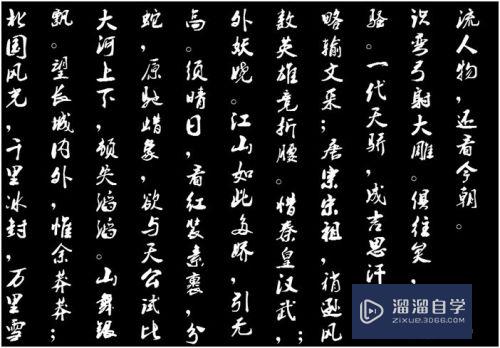 北国风光，千里冰封，万里雪
飘。望长城内外，惟余莽莽；
大河上下，顿失滔滔。山舞银
蛇，原驰蜡象，欲与天公试比
高。须晴日，看红装素裹，分
外妖娆。江山如此多娇，引无
数英雄竞折腰。惜秦皇汉武，
略输文采；唐宗宋祖，稍逊风
骚。一代天骄，成吉思汗
识弯弓射大雕。俱往矣，
流人物，还看今朝。
溜溜自学
ZIXUE.3D66.COM